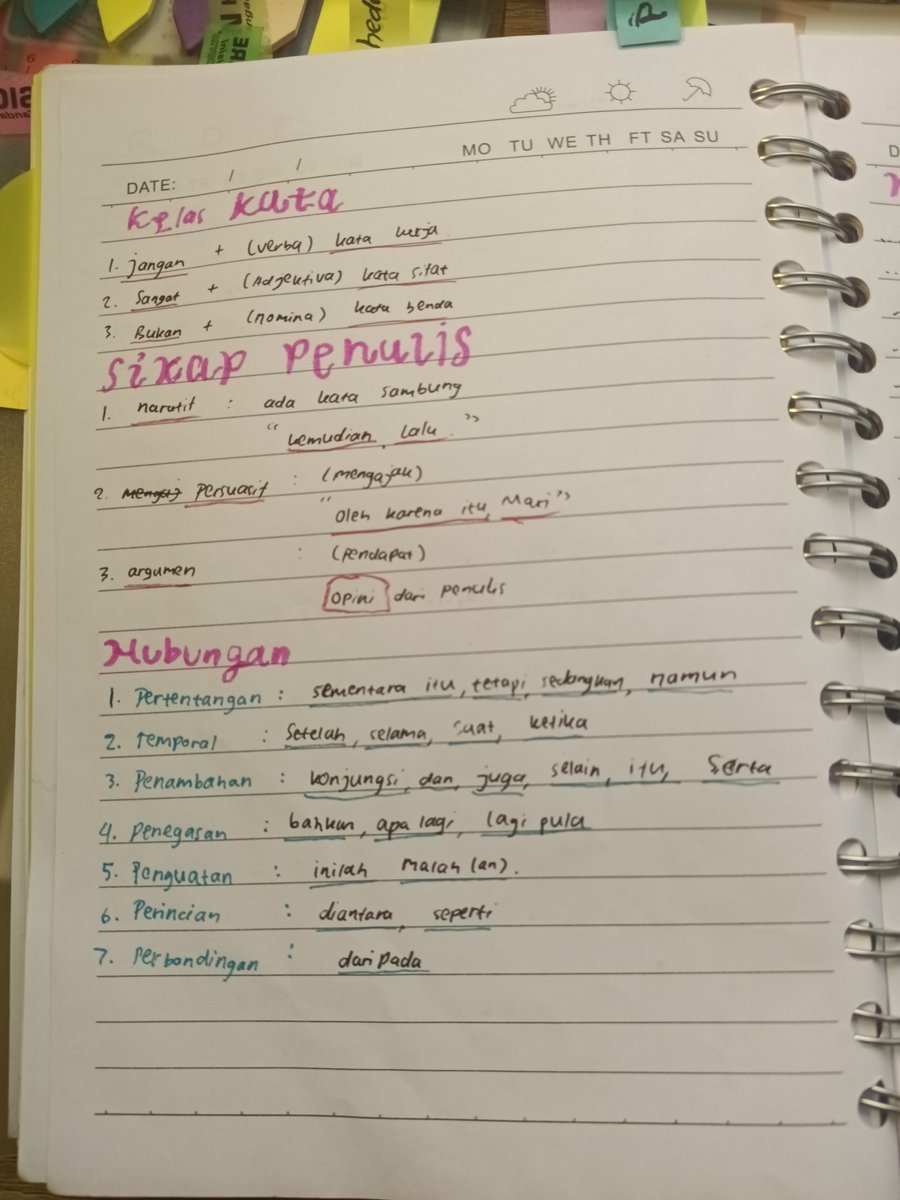 hedo
P
MO TU WE TH FT SA SU
DATE: / /
Kelas Kata
1. jangan + (verba) kata kerja
2. Sangat + (Adjektiva) kata sifat
3. Bukan + (nomina) kata benda
Sikap Penulis
1. naratif : ada kata sambung
"kemudian, lalu."
2. Mengaj Persuasif : (mengajak)
"Oleh karena itu, Mari"
3. argumen : (Pendapat)
Opini dari penulis
Hubungan
1. Pertentangan : sementara itu, tetapi, sedangkan, namun
2. Temporal : Setelah, selama, Saat, ketika
3. Penambahan : konjungsi, dan, juga, selain, itu, Serta
4. Penegasan : bahkan, apa lagi, lagi pula
5. Penguatan : inilah Malah (an).
6. Perincian : diantara, seperti
7. Perbandingan : daripada